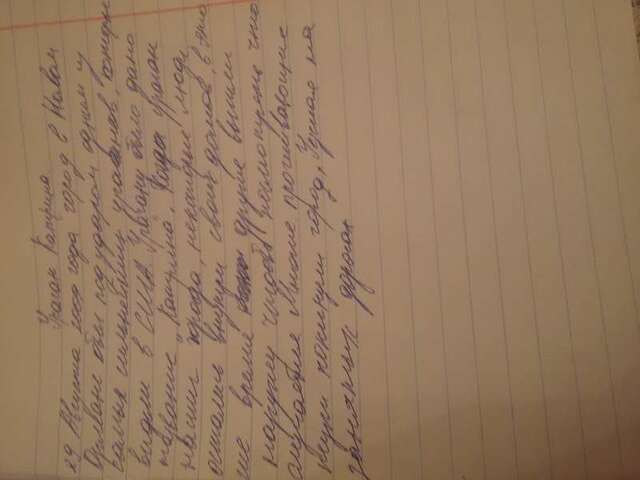 Ураган Катрина
29 Августа 2005 года город в Новом
Орлеане был под ударом одним из
самых сильнейших ураганов, которые
видели в США. Урагану было дано
название „Катрина". Когда ураган
города, некоторые люди
остались внутри своих домов, в это
же время другие вышли
наружу чтобы посмотреть что
случается Многие проживающие
покинули город, на
занятых дорогах